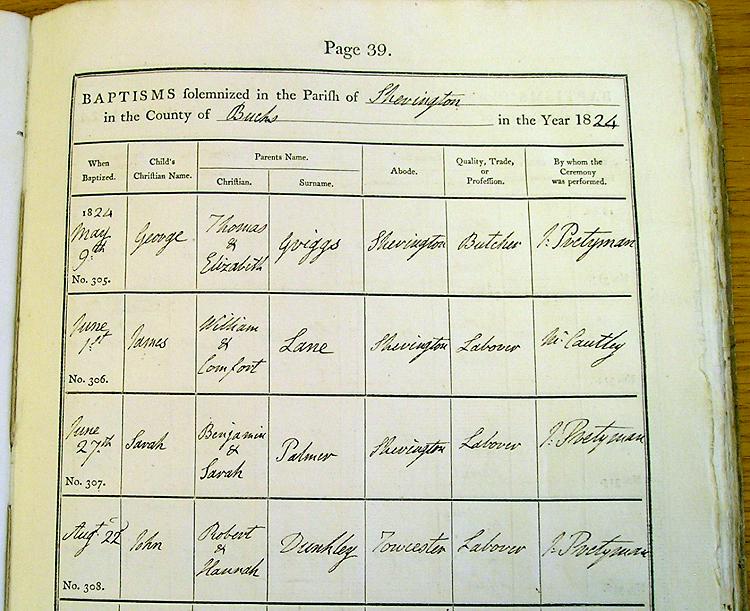 Page 39.
BAPTISMS solemnized in the Parish of Sherington
in the County of Bucks in the Year 1824
When Baptized. Child's Christian Name. Parents Name. Abode. Quality, Trade, or Profession. By whom the Ceremony was performed.
Christian. Surname.
1824 May 9th George Thomas & Elizabeth Griggs Sherington Butcher J. Pretyman
No. 305.
June 1st James William & Comfort Lane Sherington Labourer Wm Cautley
No. 306.
June 27th Sarah Benjamin & Sarah Palmer Sherington Labourer J. Pretyman
No. 307.
Augt 22d John Robert & Hannah Dunkley Towcester Labourer J. Pretyman
No. 308.